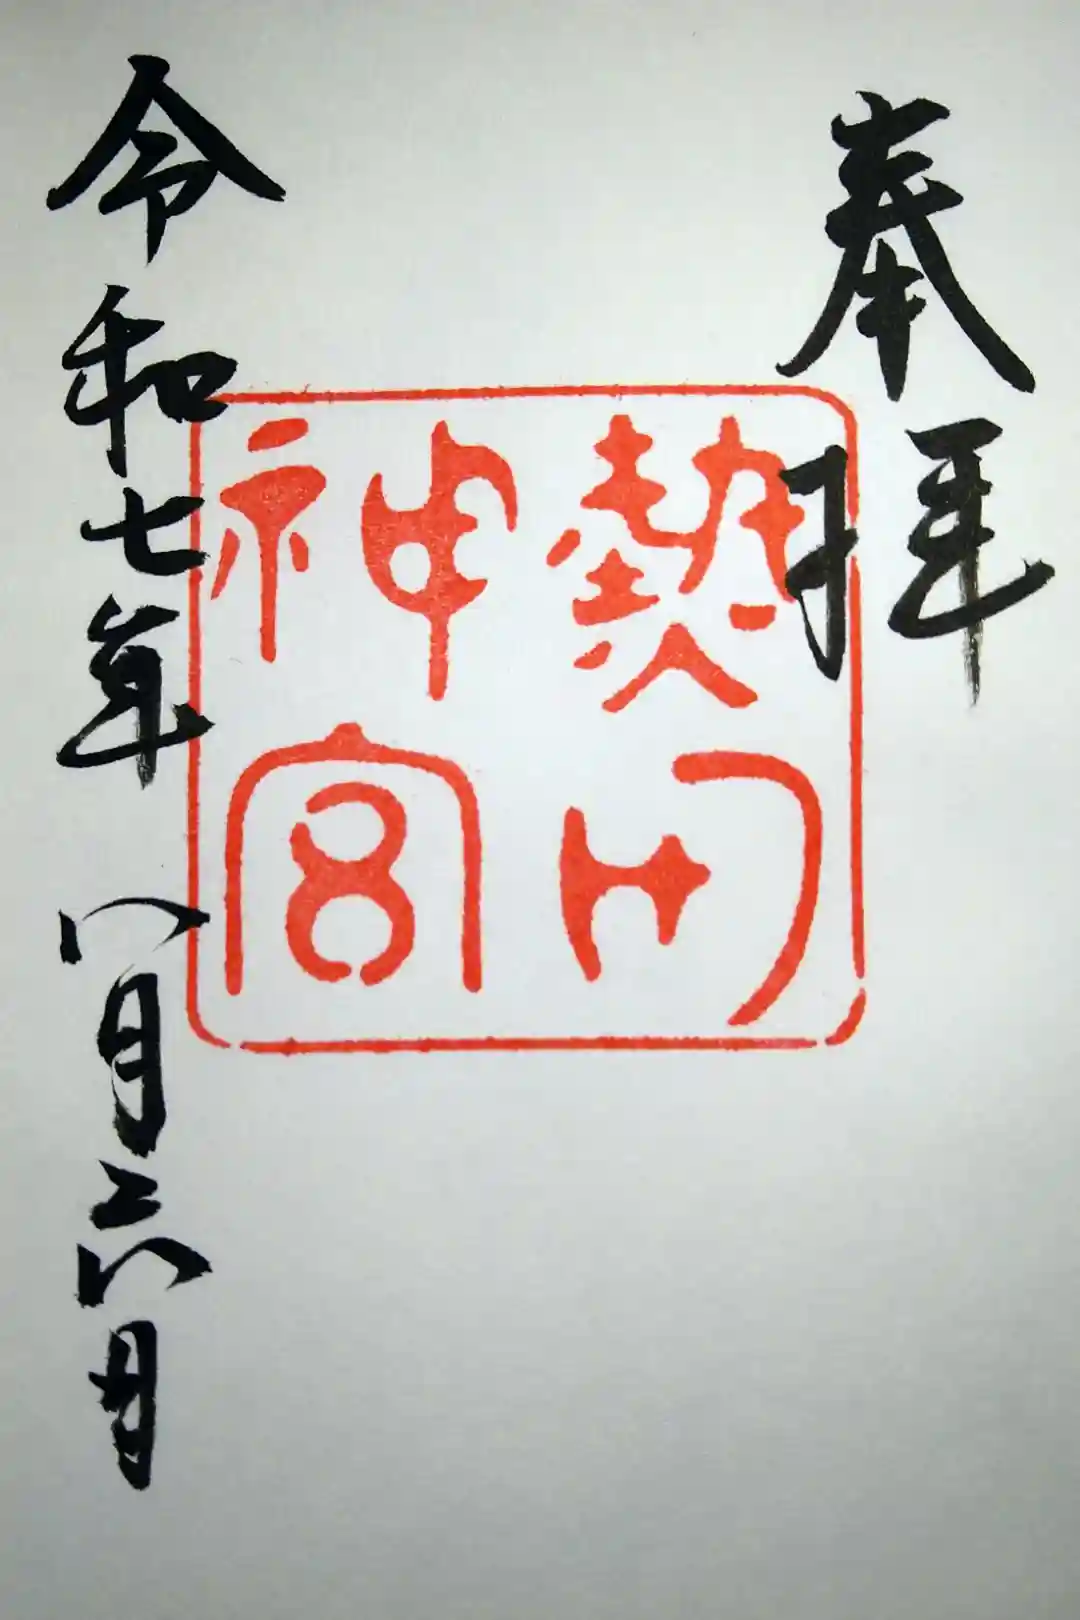 奉拝
熱田
神宮
令和七年 八月六日